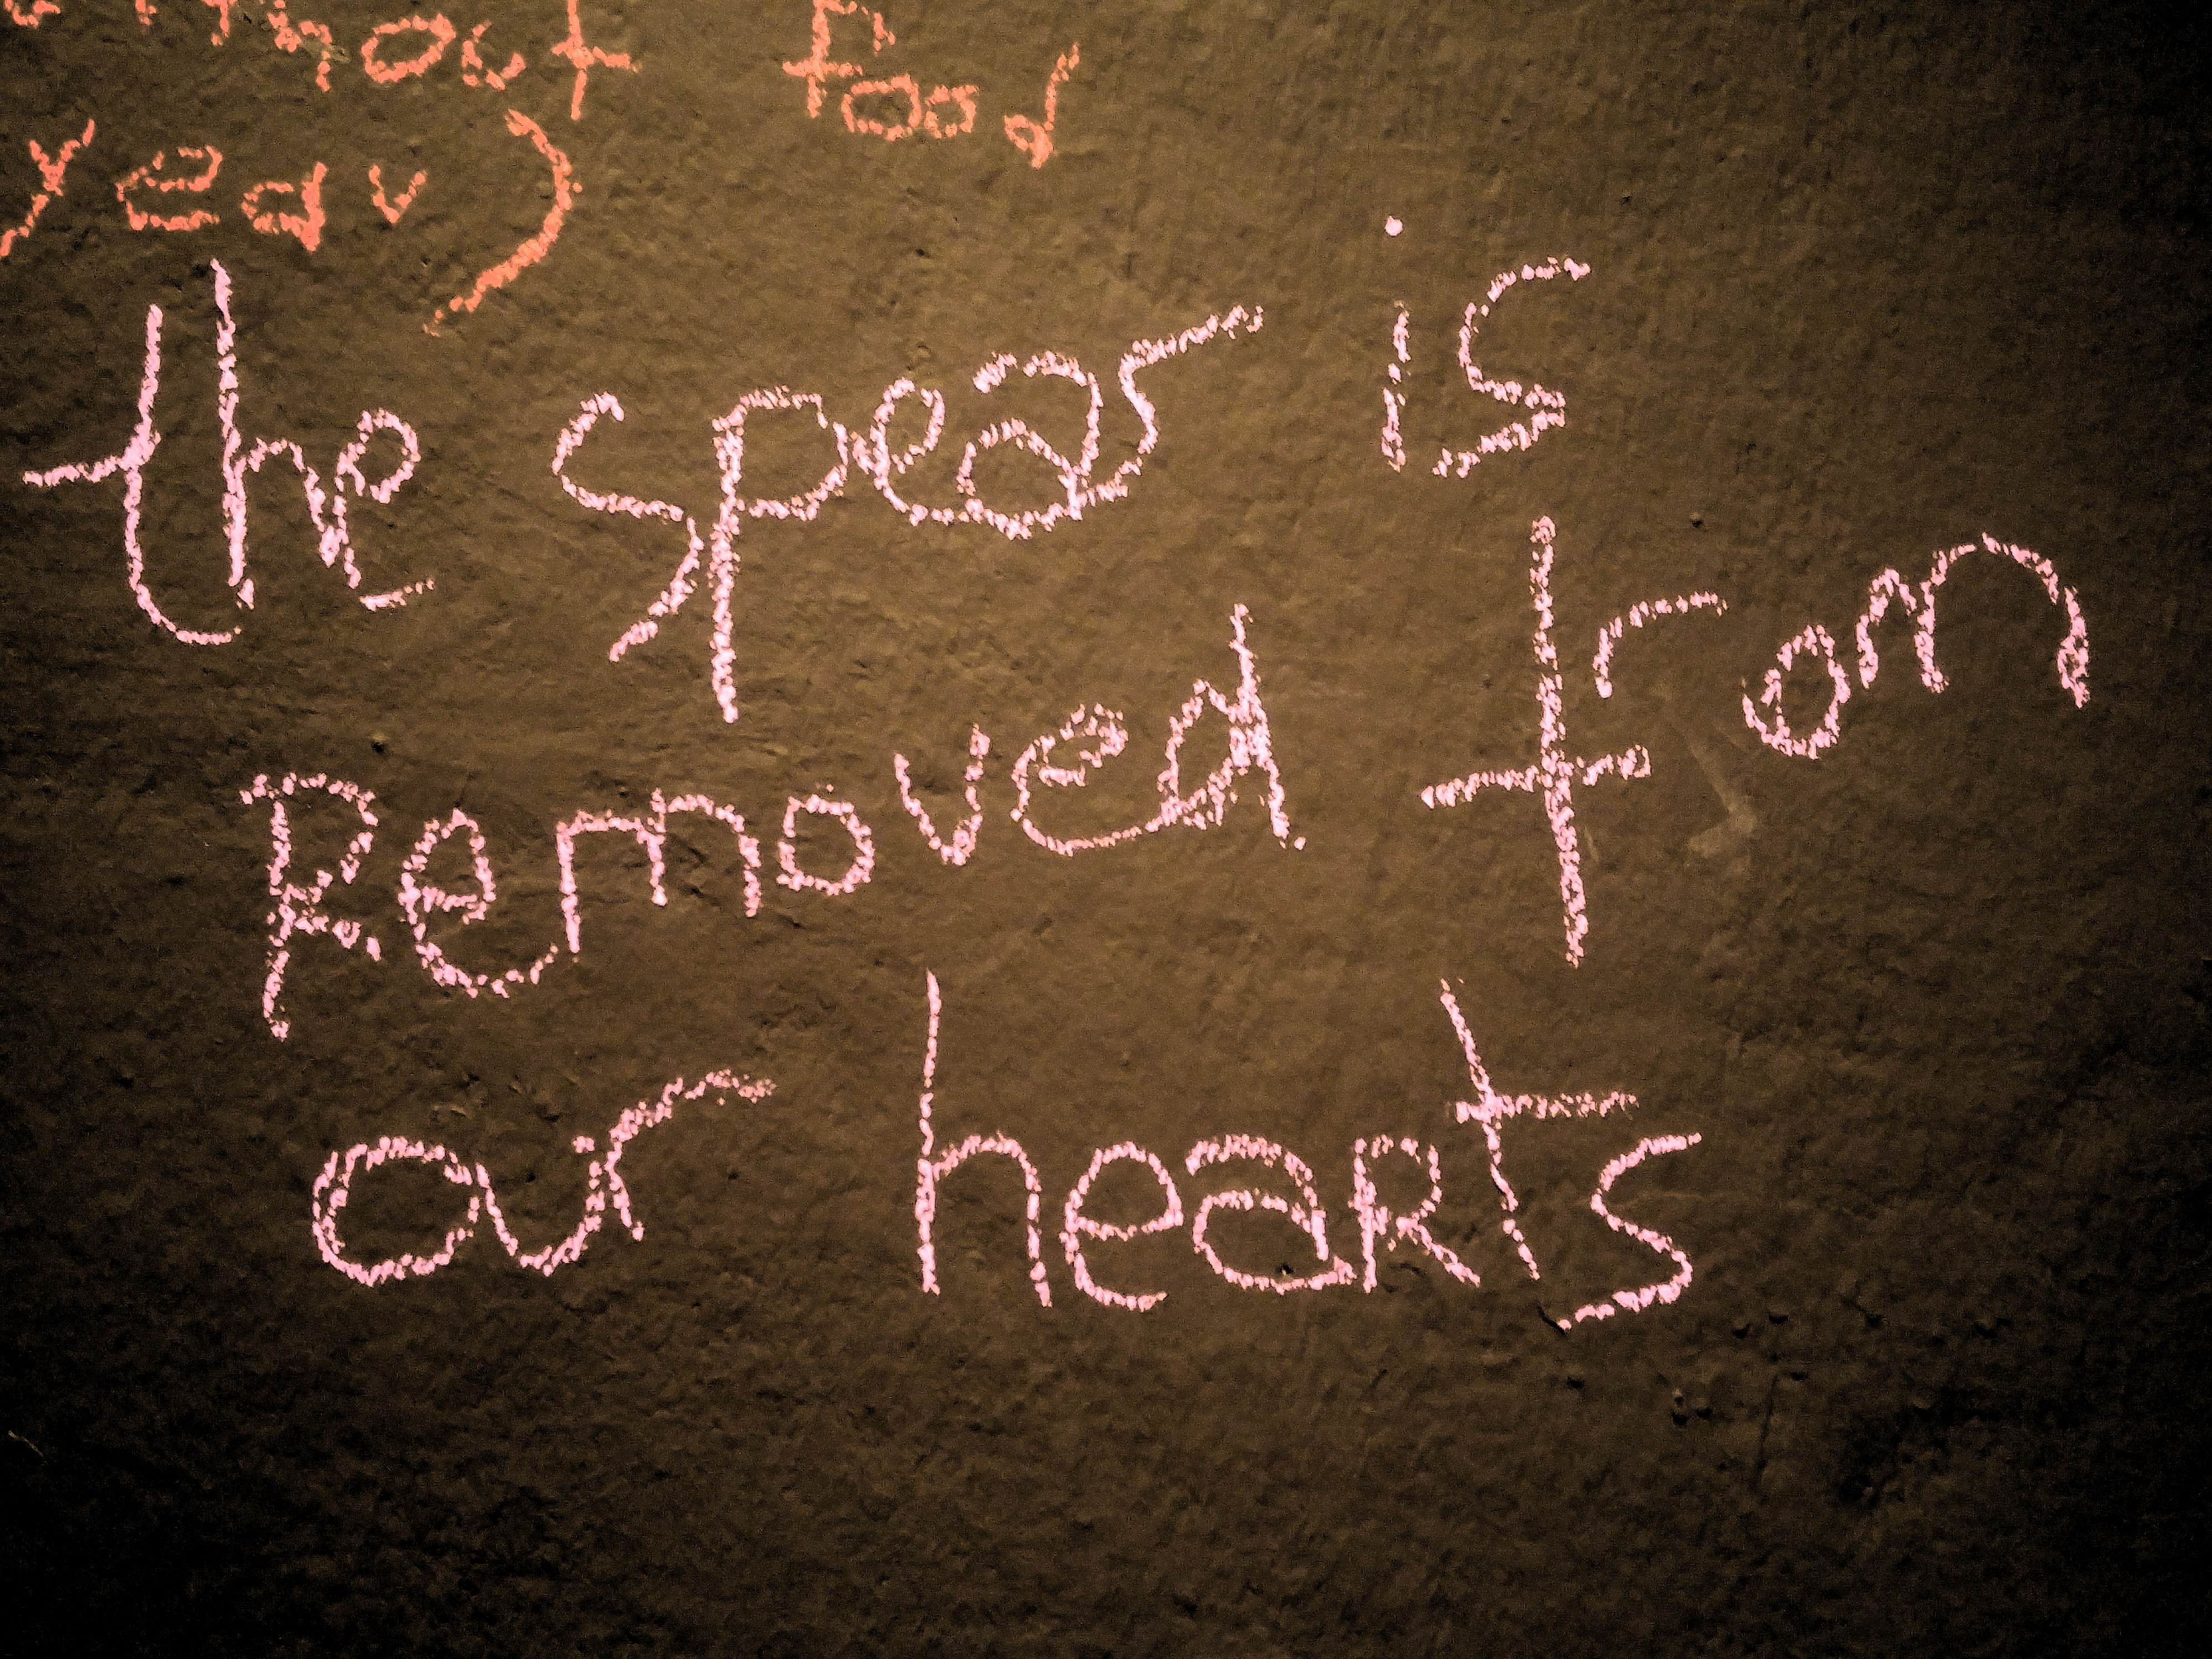 food
year)
the spear is
Removed from
our hearts